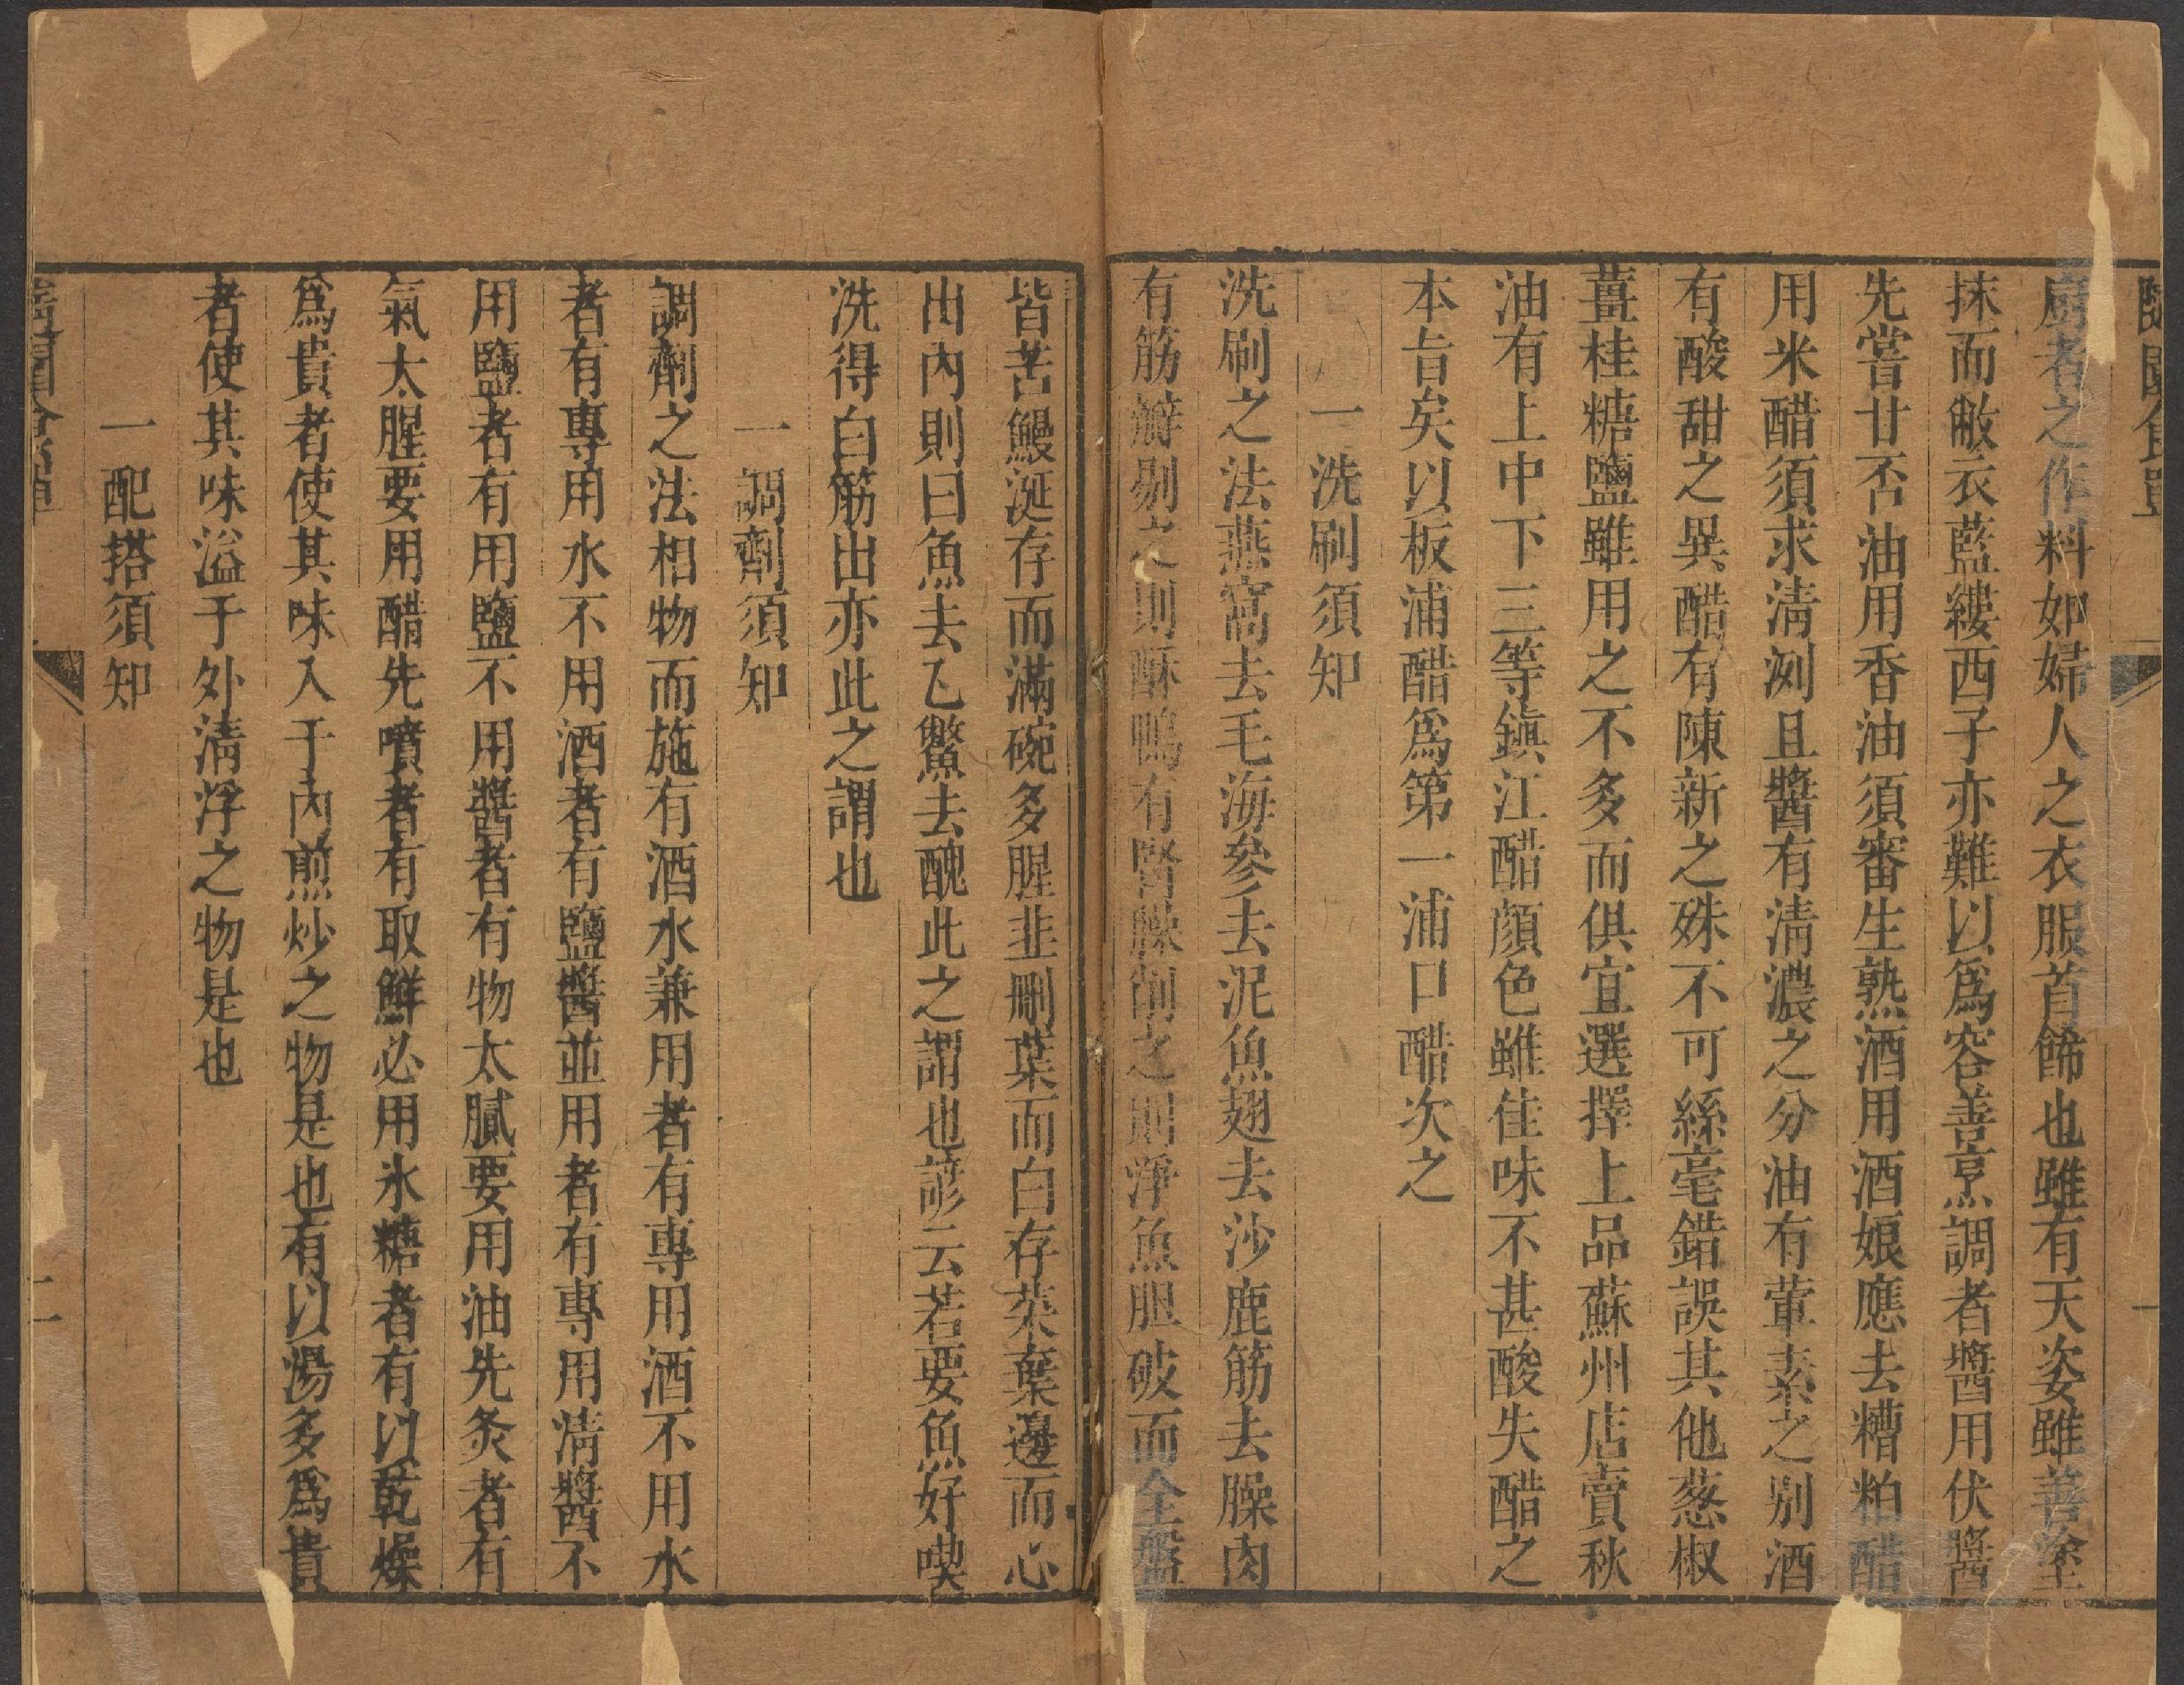 隨園食單
廚者之作料如婦人之衣服首飾也雖有天姿雖善塗
抹而敝衣藍縷西子亦難以爲容善烹調者醬用伏醬
先嘗甘否油用香油須審生熟酒用酒娘應去糟粕醋
用米醋須求清洌且醬有清濃之分油有葷素之別酒
有酸甜之異醋有陳新之殊不可絲毫錯誤其他葱椒
薑桂糖鹽雖用之不多而俱宜選擇上品蘇州店賣秋
油有上中下三等鎮江醋顏色雖佳味不甚酸失醋之
本旨矣以板浦醋爲第一浦口醋次之
一洗刷須知
洗刷之法燕窩去毛海參去泥魚翅去沙鹿筋去臊肉
有筋瓣剔之則酥鴨有腎臊削之則淨魚胆破而全盤
皆苦鰻涎存而滿碗多腥韭刪葉而白存菜棄邊而心
出內則曰魚去乙鱉去醜此之謂也諺云若要魚好喫
洗得白筋出亦此之謂也
一調劑須知
調劑之法相物而施有酒水兼用者有專用酒不用水
者有專用水不用酒者有鹽醬並用者有專用清醬不
用鹽者有用鹽不用醬者有物太膩要用油先炙者有
氣太腥要用醋先噴者有取鮮必用氷糖者有以乾燥
爲貴者使其味入于內煎炒之物是也有以湯多爲貴
者使其味溢于外清浮之物是也
一配搭須知
隨園食單
二